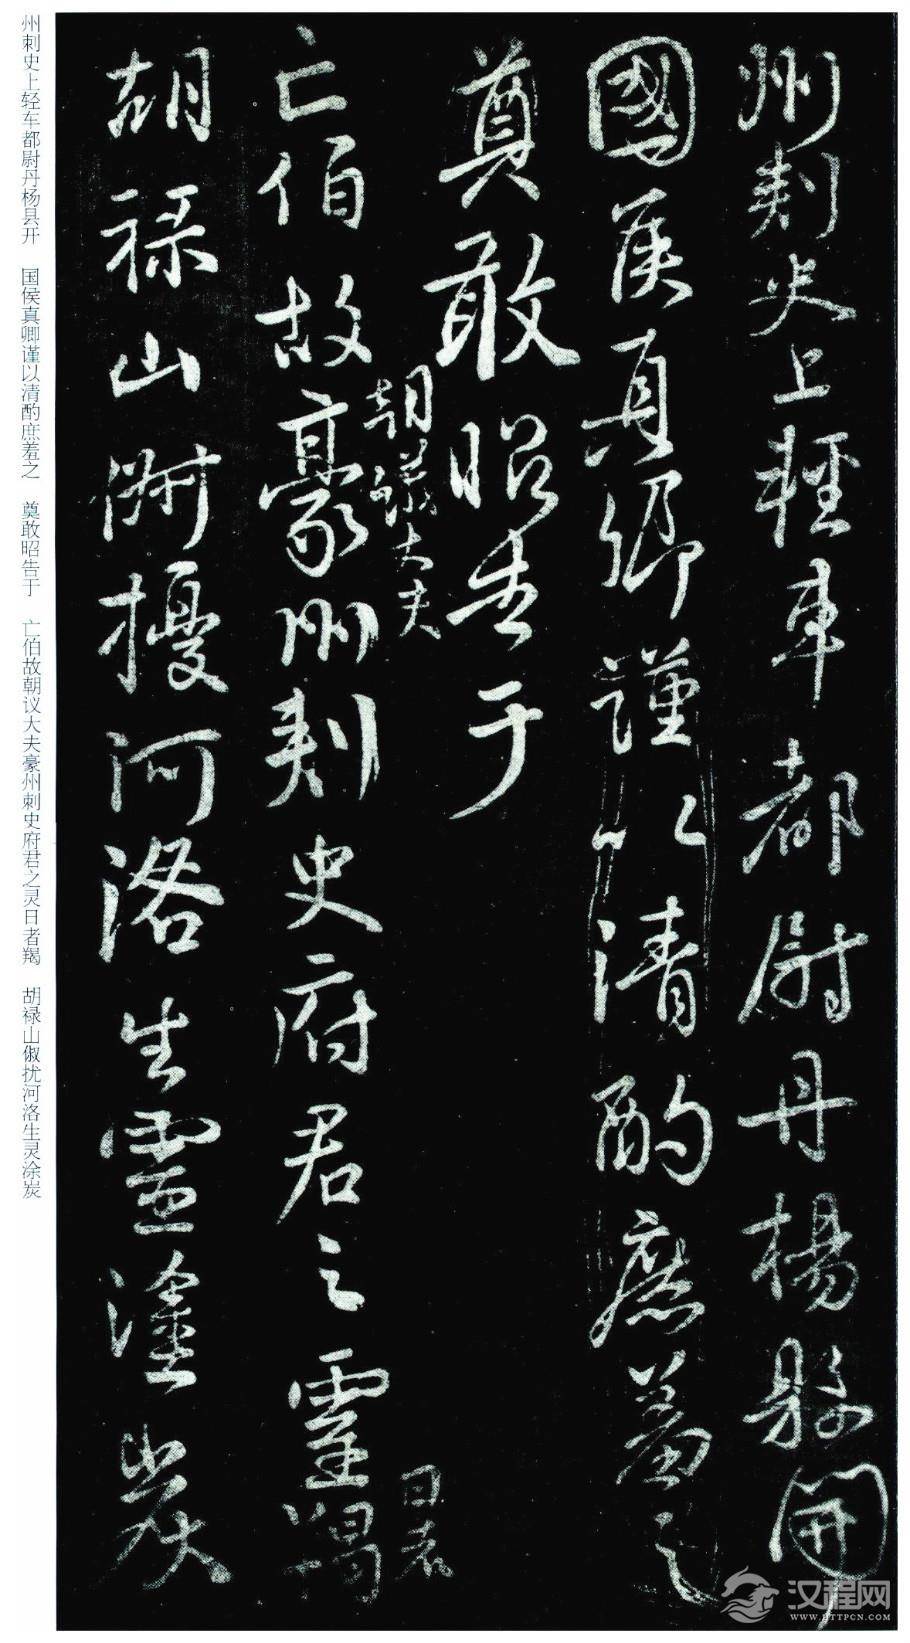 州刺史上輕車都尉丹楊縣開
國侯真卿謹以清酌庶羞之
奠敢昭告于
亡伯故豪州刺史府君之靈羯
朝議大夫
日者
胡祿山俶擾河洛生靈塗炭
州刺史上轻车都尉丹杨县开 国侯真卿谨以清酌庶羞之 奠敢昭告于 亡伯故朝议大夫豪州刺史府君之灵日者羯 胡禄山俶扰河洛生灵涂炭
汉程网
WWW.HTTPCN.COM